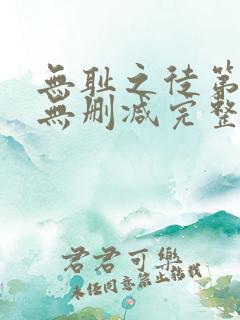 無耻之徒第
無删减完整
君君可樂
未经同意禁止转载